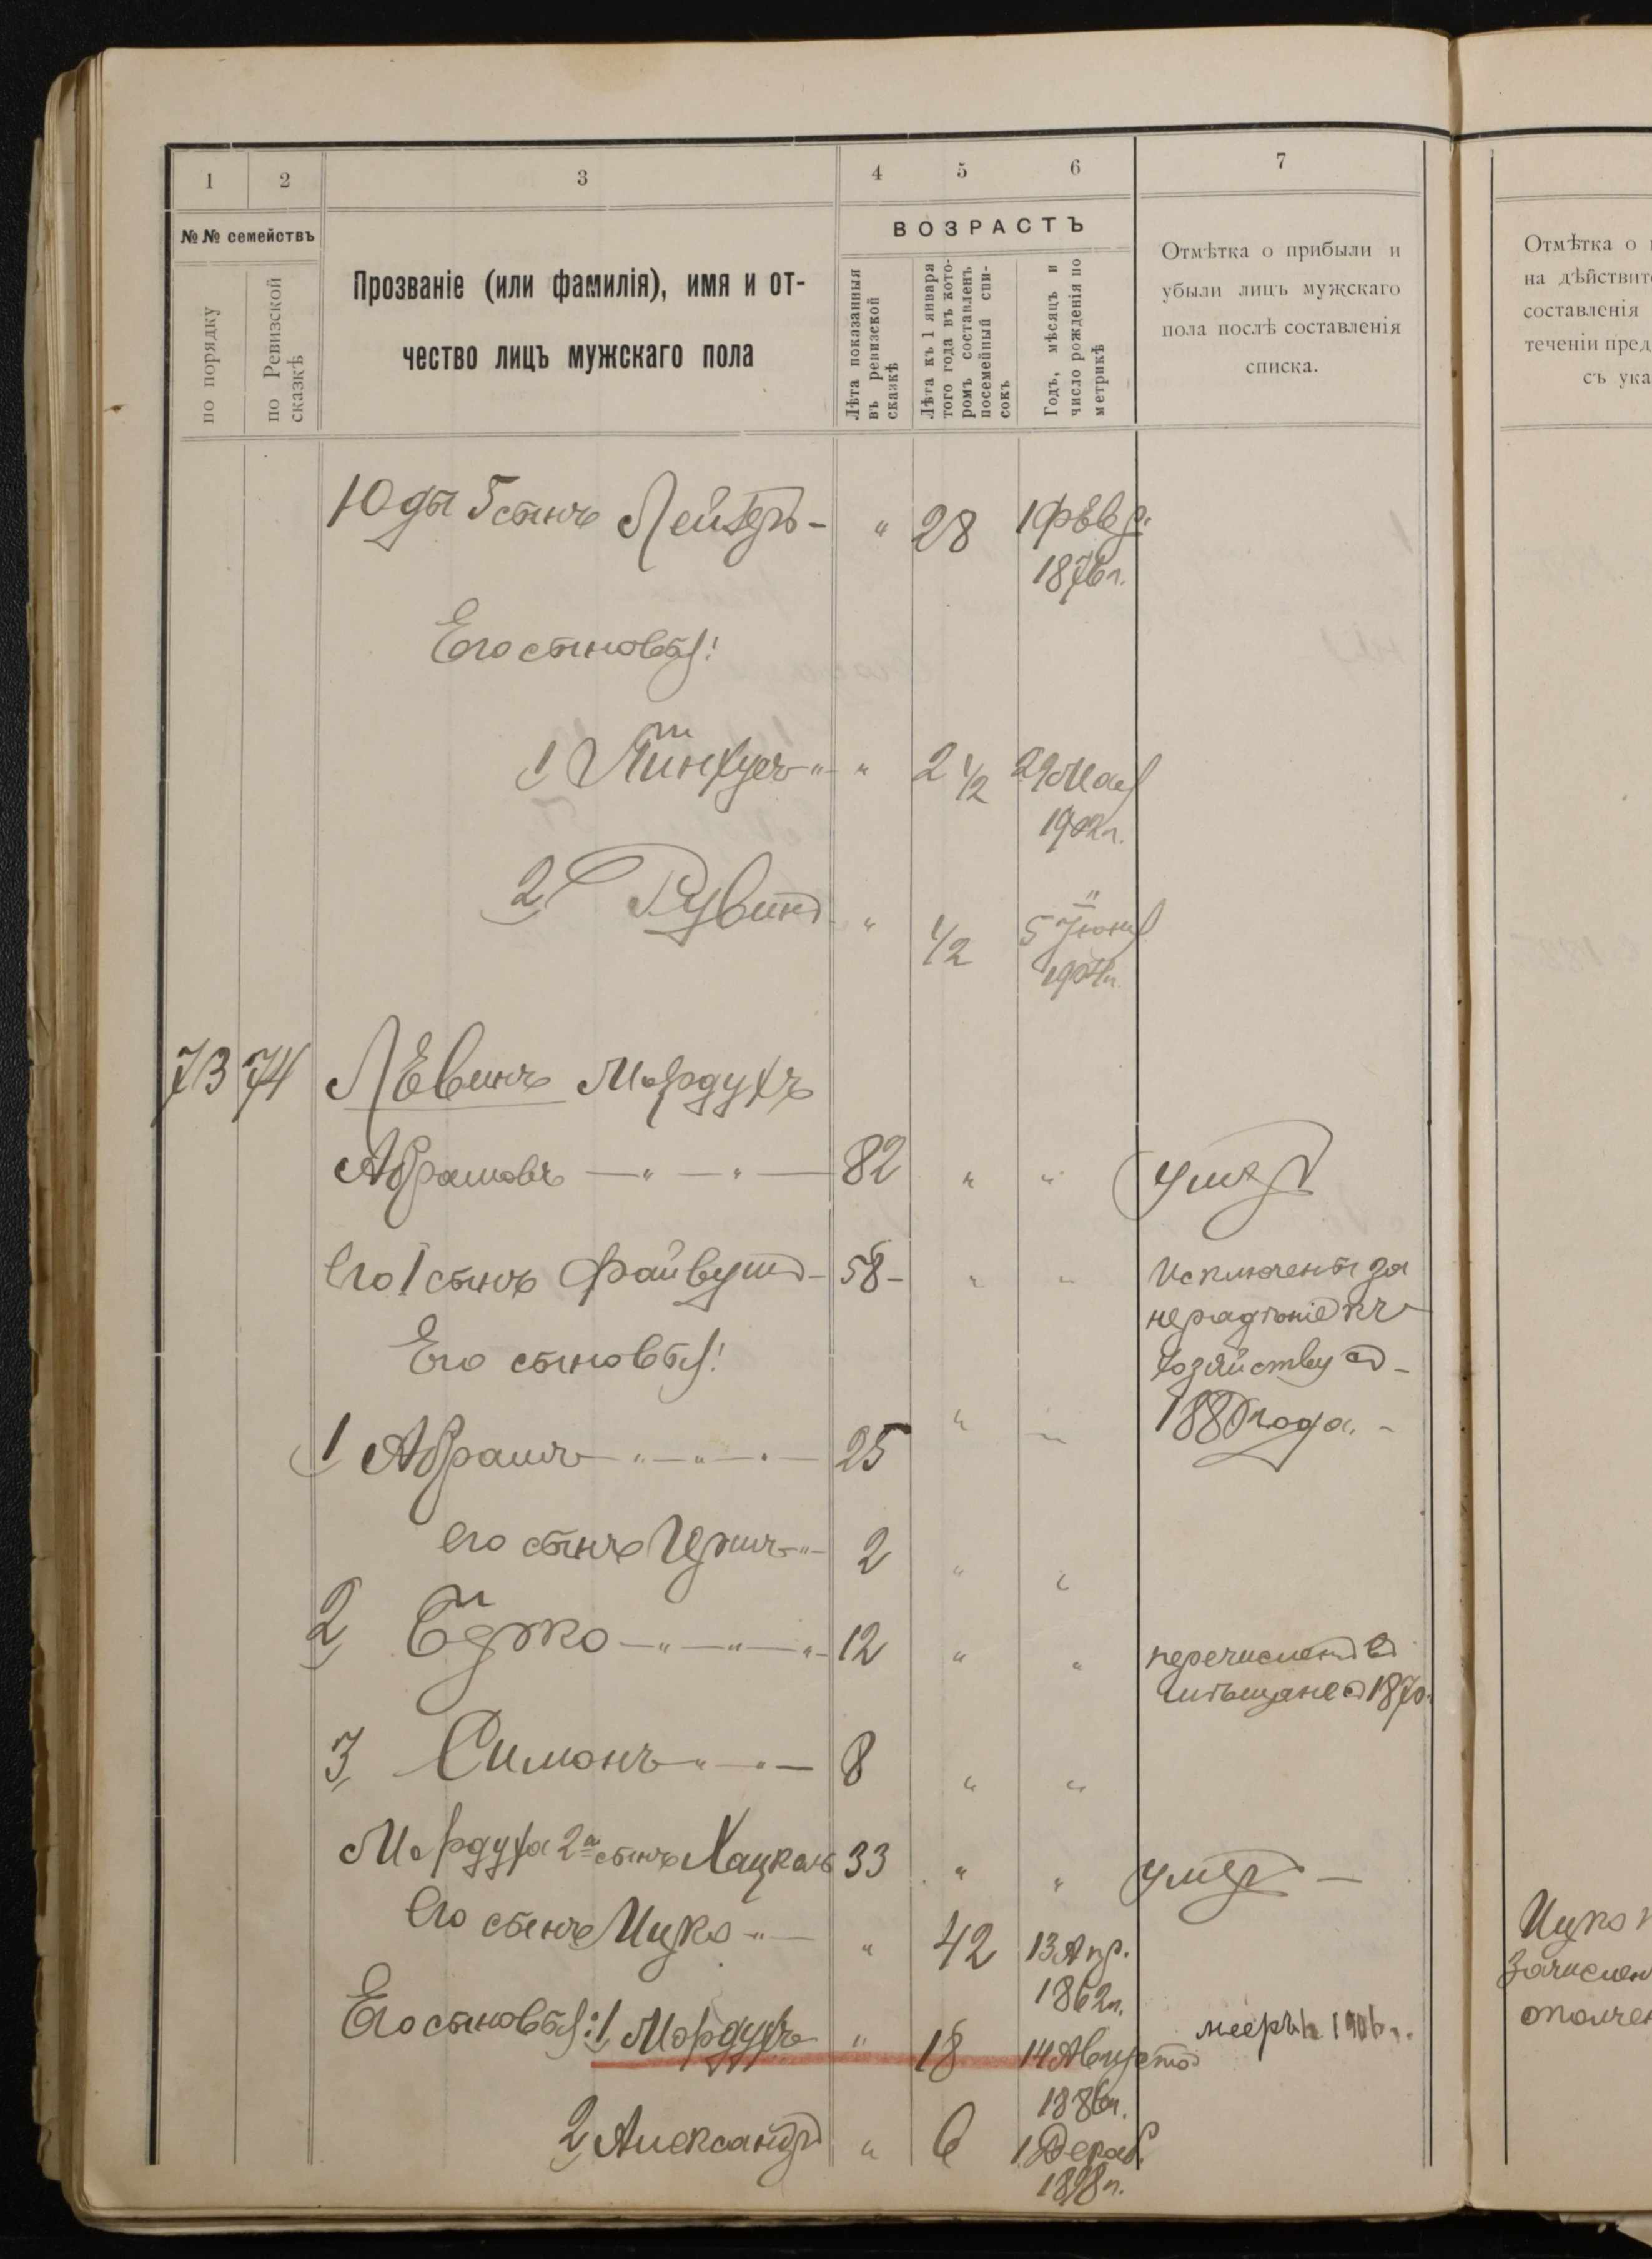 1 2 3 4 5 6 7
№№ семействъ
по порядку
по Ревизской сказкѣ
Прозваніе (или фамилія), имя и от-
чество лицъ мужскаго пола
ВОЗРАСТЪ
Лѣта показанныя
въ ревизской
сказкѣ
Лѣта къ 1 января
того года въ кото-
ромъ составленъ
посемейный спи-
сокъ
Годъ, мѣсяцъ и
число рожденія по
метрикѣ
Отмѣтка о прибыли и
убыли лицъ мужскаго
пола послѣ составленія
списка.
Отмѣтка о
на дѣйствит
составленія
теченіи пред
съ ука
Юды 5 сынъ Лейзеръ - " 28 1 Февр.
1876 г.
Его сыновья:
1 Пинхусъ " " 2 1/2 29 Мая
1902 г.
2 Рувинъ " 1/2 5 Іюня
1904 г.
73 74 Левинъ Мордухъ
Абрамовъ — " — " — 82 " " умеръ
Его 1 сынъ Файвушъ - 58 - " " Исключенъ за
нерадѣніе къ
Его сыновья:
хозяйству съ -
1880 года. -
1 Абрамъ — " — " — 25 " "
его сынъ Иршъ - " - 2 " "
2 Берко — " — " — 12 " " перечисленъ въ
мѣщане съ 1870
3 Симонъ - " - 8 " "
Мордуха 2й сынъ Хацкель 33 " " умеръ —
Его сынъ Ицко - " - " 42 13 Апр.
1862 г.
Его сыновья: 1 Мордухъ " 18 14 Августа
1886 г.
1906 г.
2 Александръ " 6 1 Декаб.
1898 г.
Ицко
зачислен
ополчен